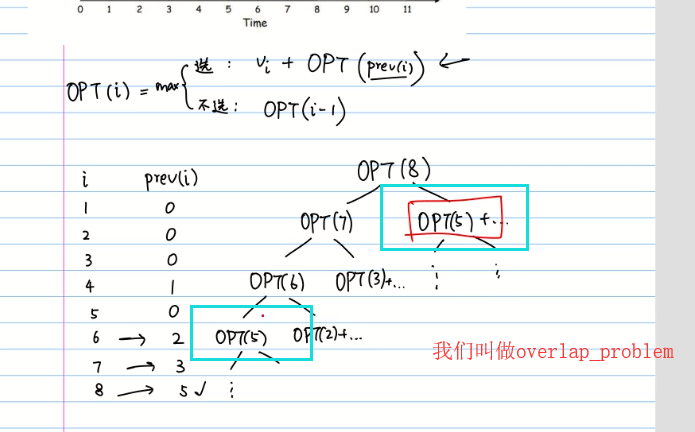 0 1 2 3 4 5 6 7 8 9 10 11
Time
OPT(i) = max
选: vi + OPT(prev(i)) ←
不选: OPT(i-1)
i prev(i)
1 0
2 0
3 0
4 1
5 0
6 → 2
7 → 3
8 → 5 ✓
OPT(8)
OPT(7) OPT(5)+...
OPT(6) OPT(3)+... ⋮ ⋮
OPT(5) OPT(2)+...
⋮
我们叫做overlap_problem